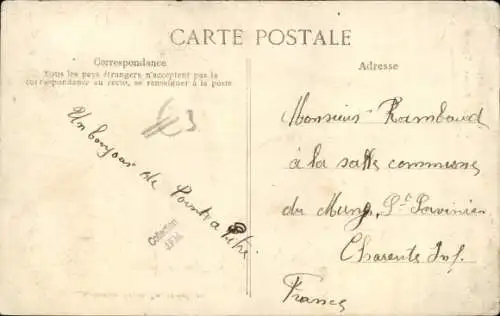 CARTE POSTALE
Correspondance
Tous les pays étrangers n'acceptent pas la
correspondance au recto, se renseigner à la poste
Adresse
Un bonjour de Pointe à Pitre
Collection
Monsieur Rambaud
à la salle communes
du Mung, St Savinien
Charente Inf.
France